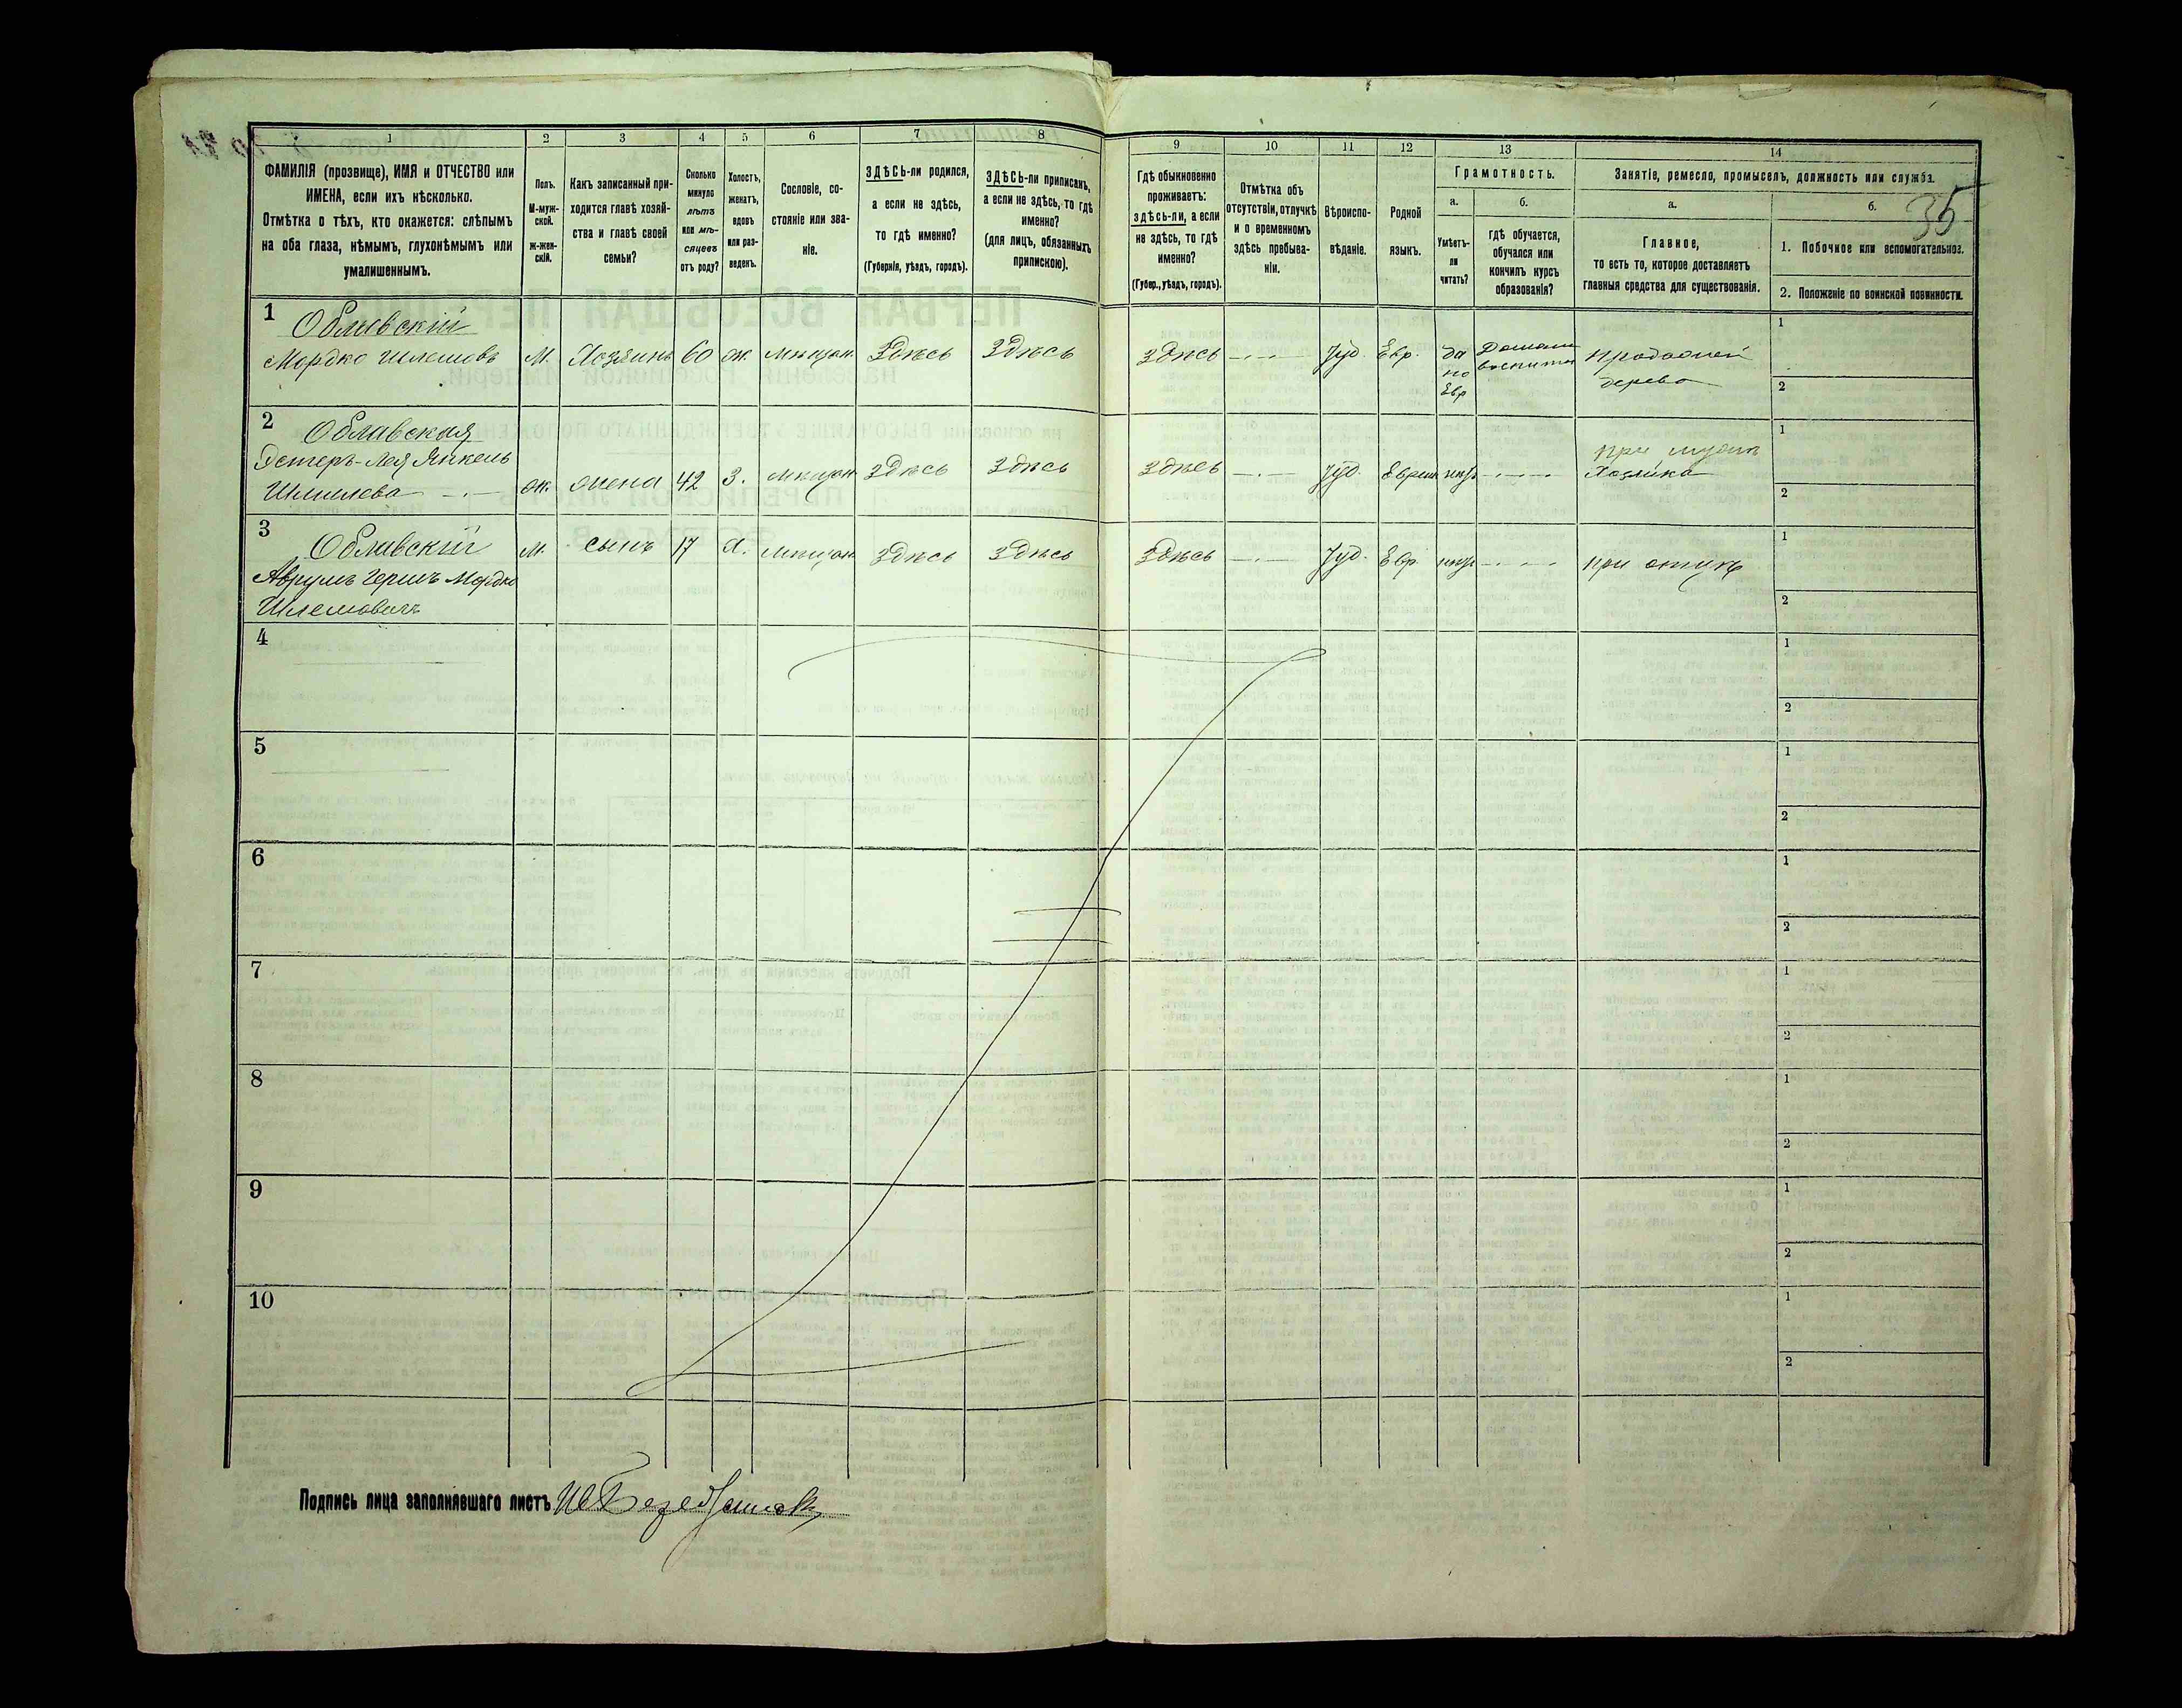 1
ФАМИЛІЯ (прозвище), ИМЯ и ОТЧЕСТВО или
ИМЕНА, если ихъ нѣсколько.
Отмѣтка о тѣхъ, кто окажется: слѣпымъ
на оба глаза, нѣмымъ, глухонѣмымъ или
умалишеннымъ.
2
Полъ.
М-муж-
ской.
ж-жен-
скій.
3
Какъ записанный при-
ходится главѣ хозяй-
ства и главѣ своей
семьи?
4
Сколько
минуло
лѣтъ
или мѣ-
сяцевъ
отъ роду?
5
Холостъ,
женатъ,
вдовъ
или раз-
веденъ.
6
Сословіе, со-
стояніе или зва-
ніе.
7
ЗДѢСЬ-ли родился,
а если не здѣсь,
то гдѣ именно?
(Губернія, уѣздъ, городъ).
8
ЗДѢСЬ-ли приписанъ,
а если не здѣсь, то гдѣ
именно?
(для лицъ, обязанныхъ
припискою).
9
Гдѣ обыкновенно
проживаетъ:
здѣсь-ли, а если
не здѣсь, то гдѣ
именно?
(Губер., уѣздъ, городъ).
10
Отмѣтка объ
отсутствіи, отлучкѣ
и о временномъ
здѣсь пребыва-
ніи.
11
Вѣроиспо-
вѣданіе.
12
Родной
языкъ.
13
Грамотность.
а.
Умѣетъ-
ли
читать?
б.
гдѣ обучается,
обучался или
кончилъ курсъ
образованія?
14
Занятіе, ремесло, промыселъ, должность или служба.
а.
Главное,
то есть то, которое доставляетъ
главныя средства для существованія.
б.
35
1. Побочное или вспомогательное.
2. Положеніе по воинской повинности.
1
Облавскій
Мордко Шлемовъ М. Хозяинъ 60 ж. мѣщан. Здѣсь Здѣсь Здѣсь Іуд. Евр. да
по
Евр
Домашн
воспитан
продажей
дерева
1
2
2
Облавская
Эстеръ-Лея Янкель
Шмилева ж. жена 42 З. мѣщан Здѣсь Здѣсь Здѣсь Іуд. Еврей
при мужѣ
Хозяйка
1
2
3
Облавскій М. сынъ 17 Х. мѣщан Здѣсь Здѣсь Здѣсь Іуд. Евр при отцѣ
Аврумъ Гершъ Мордко
Шлемовичъ
1
2
4
1
2
5
1
2
6
1
2
7
1
2
8
1
2
9
1
2
10
1
2
Подпись лица заполнявшаго листъ